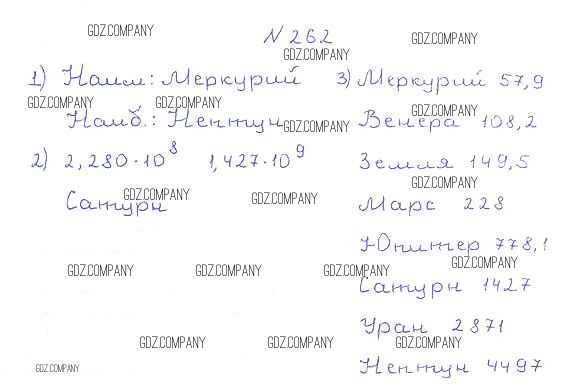 GDZ.COMPANY
N 262
GDZ.COMPANY
GDZ.COMPANY
1) Наим: Меркурий
GDZ.COMPANY
GDZ.COMPANY
Наиб.: Нептун
GDZ.COMPANY
2) 2,280·10⁸ 1,427·10⁹
GDZ.COMPANY
GDZ.COMPANY
Сатурн
3) Меркурий 57,9
GDZ.COMPANY
Венера 108,2
Земля 149,5
GDZ.COMPANY
Марс 228
Юпитер 778,1
GDZ.COMPANY
Сатурн 1427
Уран 2871
GDZ.COMPANY
Нептун 4497
GDZ.COMPANY
GDZ.COMPANY
GDZ.COMPANY
GDZ.COMPANY
GDZ.COMPANY
GDZ.COMPANY